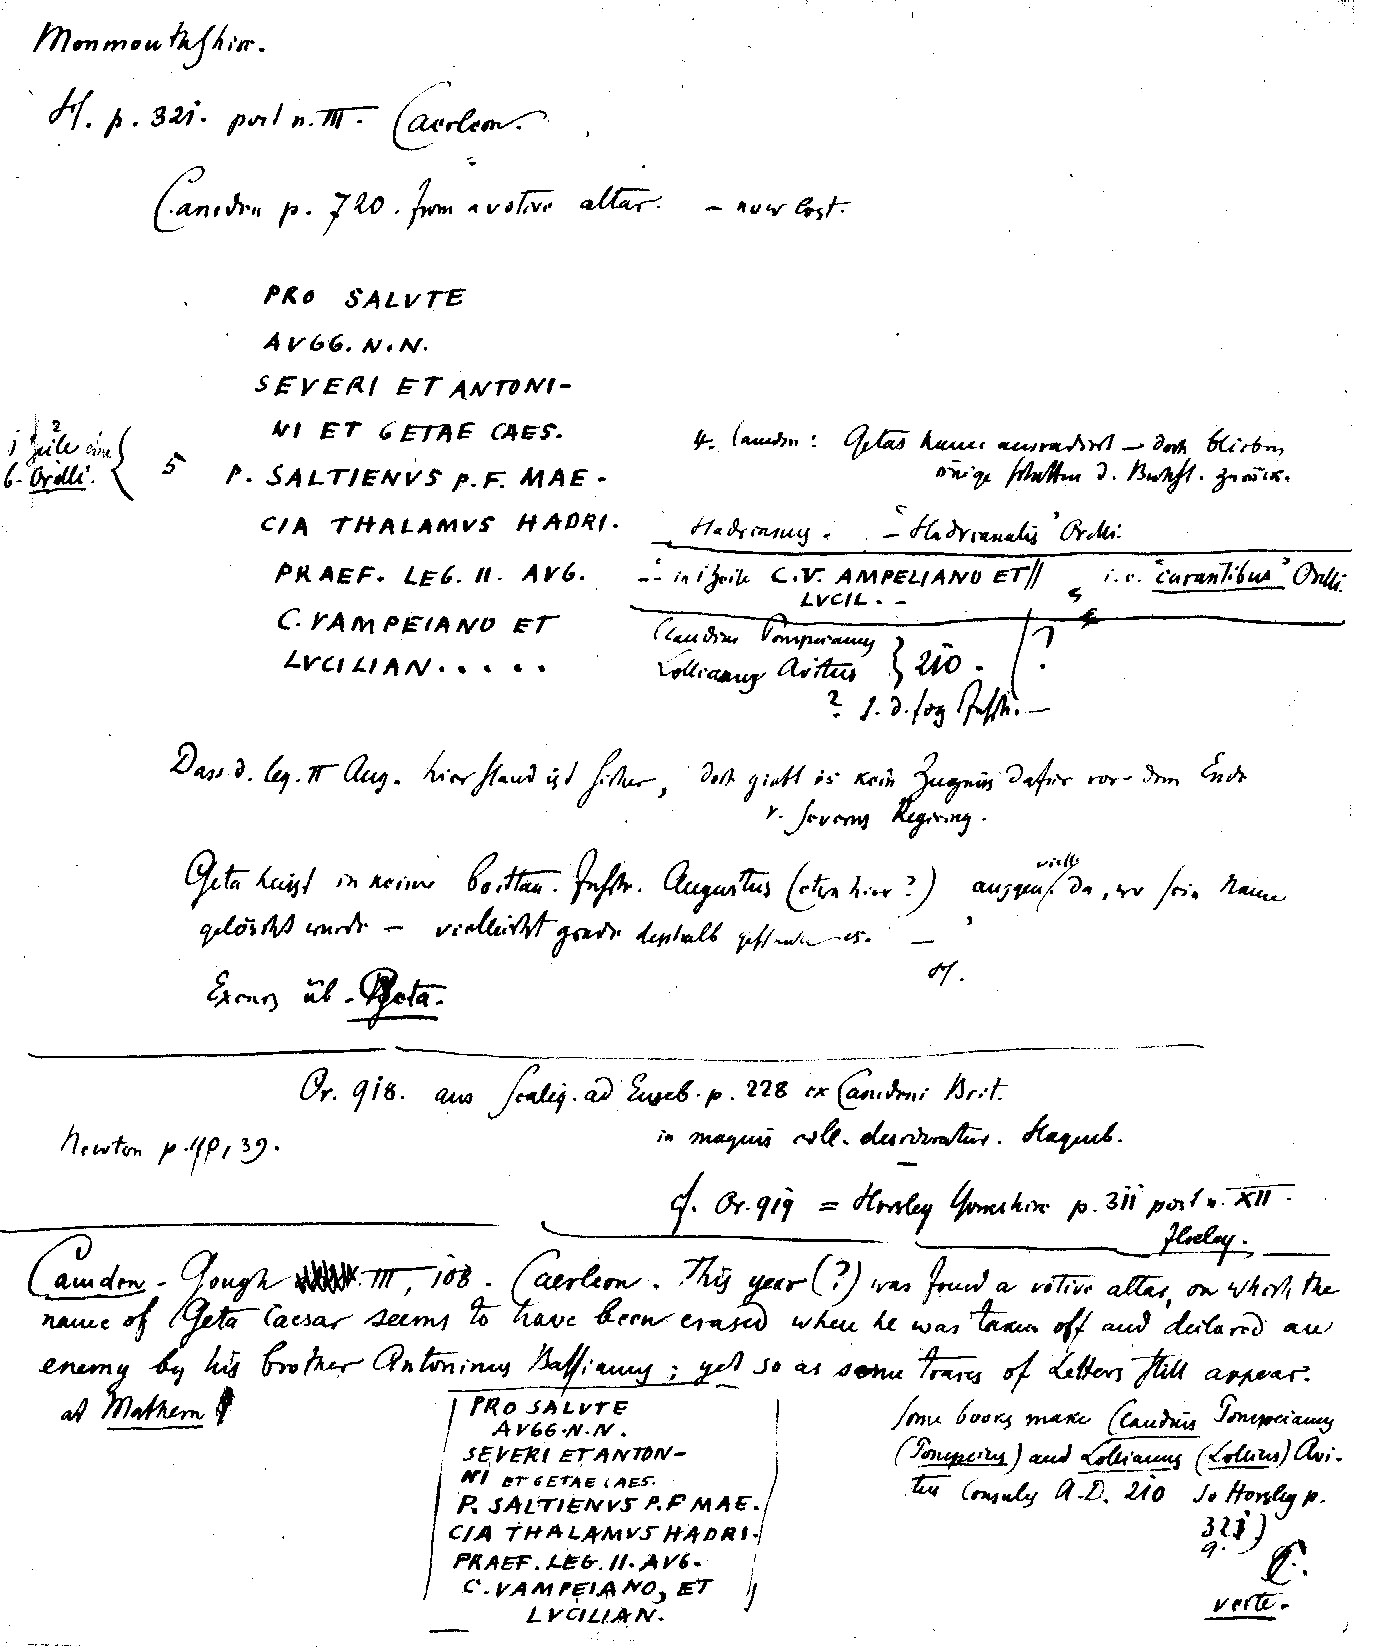 Monmouthshire.
H. p. 321. post n. III. Caerleon.
Camden p. 720. from a votive altar. – now lost.
PRO SALVTE
AVGG. N. N.
SEVERI ET ANTONI–
NI ET GETAE CAES.
4. Camden: Getas name ausradirt – doch blieben
einige Schatten d. Buchst. zurück.
1 Zeile eine
6. Orelli.
5 P. SALTIENVS P. F. MAE–
CIA THALAMVS HADRI.
Hadrianus. – "Hadrianalis" Orelli.
PRAEF. LEG. II. AVG.
– in 1 Zeile C. V. AMPELIANO ET //
LVCIL. –
i. e. "curantibus" Orelli.
C. VAMPEIANO ET
LVCILIAN. . . . .
Claudius Pompeianus
Lollianus Avitus } 210. ( ?
? s. d. folg Inschr. –
Dass d. leg. II Aug. hier stand ist sicher, doch giebt es kein Zeugnis dafür vor dem Ende
v. Severus Regierung.
Geta heisst in keiner brittan. Inschr. Augustus (etwa hier?) ausgen. vielle da, wo sein Name
gelöscht wurde – vielleicht grade desshalb geschah es. –
H.
Excurs üb. Geta.
Or. 918. aus Scalig. ad Euseb. p. 228 ex Camdeni Brit.
in magnis coll. desideratur. Hagenb.
Newton p. 39.
cf. Or. 919 = Horsley Yorkshire p. 311 post n. XII.
Ilkley.
Camden – Gough III, 108. Caerleon. This year (?) was found a votive altar, on which the
name of Geta Caesar seems to have been erased when he was taken off and declared an
enemy by his brother Antoninus Bassianus; yet so as some traces of Letters still appear.
at Mathern
PRO SALVTE
AVGG. N. N.
SEVERI ET ANTON–
NI ET GETAE CAES.
P. SALTIENVS P. F MAE.
CIA THALAMVS HADRI.
PRAEF. LEG. II. AVG.
C. VAMPEIANO, ET
LVCILIAN.
Some books make Claudius Pompeianus
(Pompeius) and Lollianus (Lollius) Avi–
tus Consuls A. D. 210 so Horsley p.
321)
q.
verte.